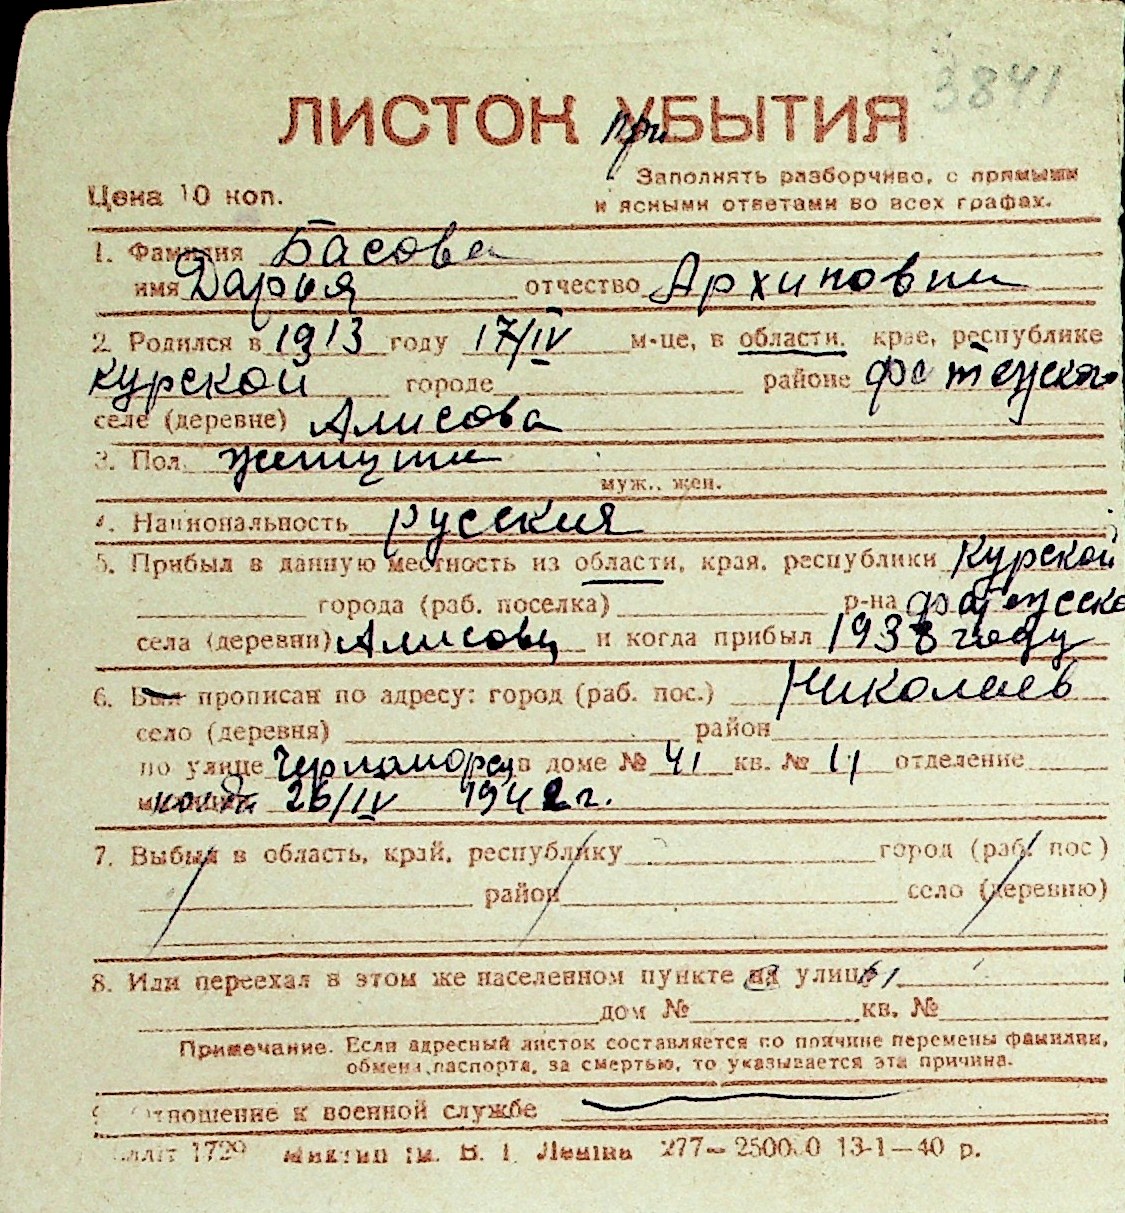 3841
ЛИСТОК при УБЫТИЯ
Заполнять разборчиво, с прямыми
Цена 10 коп.
и ясными ответами во всех графах.
1. Фамилия Басова
имя Дарья отчество Архиповни
2. Родился в 1913 году 17/IV м-це, в области, крае, республике
Курской городе районе Фатежского
селе (деревне) Алисова
3. Пол
муж., жен.
4. Национальность русския
5. Прибыл в данную местность из области, края, республики Курской
города (раб. поселка) р-на
села (деревни) Алисовц и когда прибыл 1938 году
6. Был прописан по адресу: город (раб. пос.) Николаев
село (деревня) район
по улице в доме № 41 кв. № отделение
26/IV 1942 г.
7. Выбыл в область, край, республику город (раб. пос)
район село (деревню)
8. Или переехал в этом же населенном пункте на улицы
дом № кв. №
Примечание. Если адресный листок составляется по причине перемены фамилии,
обмена паспорта, за смертью, то указывается эта причина.
9 Отношение к военной службе
1729 им. В. І. Леніна 277— 250000 13-1—40 р.